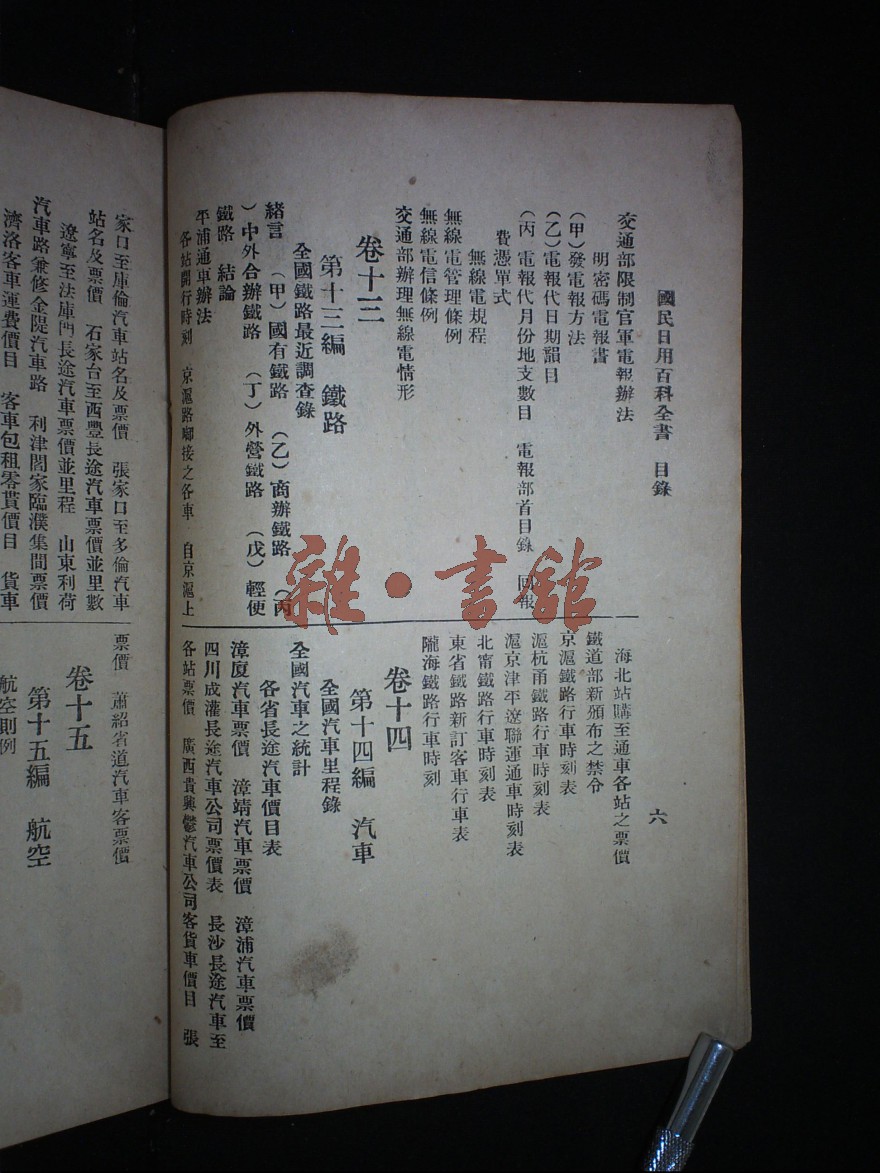 國民日用百科全書　目錄
六
交通部限制官軍電報辦法
明密碼電報書
(甲)發電報方法
(乙)電報代日期韻目
(丙)電報代月份地支數目　電報部首目錄　回報
費憑單式
無線電規程
無線電管理條例
無線電信條例
交通部辦理無線電情形
卷十三
第十三編　鐵路
全國鐵路最近調查錄
緒言　(甲)國有鐵路　(乙)商辦鐵路　(丙
)中外合辦鐵路　(丁)外營鐵路　(戊)輕便
鐵路　結論
平浦通車辦法
各站開行時刻　京滬路啣接之各車　自京滬上
海北站購至通車各站之票價
鐵道部新頒布之禁令
京滬鐵路行車時刻表
滬杭甬鐵路行車時刻表
滬京津平遼聯運通車時刻表
北甯鐵路行車時刻表
東省鐵路新訂客車行車表
隴海鐵路行車時刻
卷十四
第十四編　汽車
全國汽車里程錄
全國汽車之統計
各省長途汽車價目表
漳廈汽車票價　漳靖汽車票價　漳浦汽車票價
四川成灌長途汽車公司票價表　長沙長途汽車至
各站票價　廣西貴興鬱汽車公司客貨車價目　張
家口至庫倫汽車站名及票價　張家口至多倫汽車
站名及票價　石家台至西豐長途汽車票價並里數
遼寧至法庫門長途汽車票價並里程　山東利荷
汽車路兼修金隄汽車路　利津閻家臨濮集間票價
濟洛客車運費價目　客車包租零賃價目　貨車
票價　蕭紹省道汽車客票價
卷十五
第十五編　航空
航空則例
雜·書館